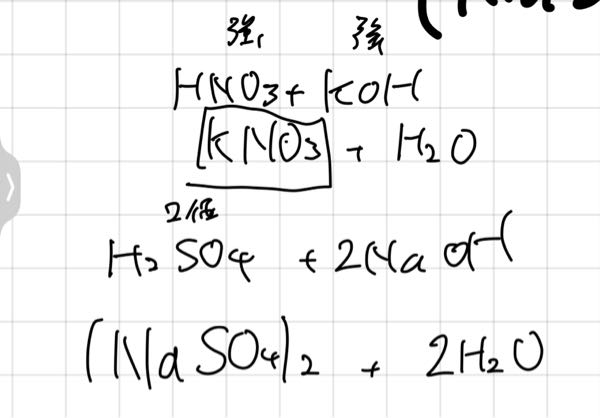 強 強
HNO3 + KOH
KNO3 + H2O
2倍
H2SO4 + 2NaOH
(NaSO4)2 + 2H2O